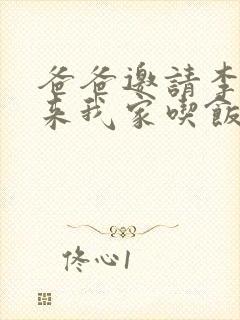 爸爸邀請李
來我家喫飯
佟心1